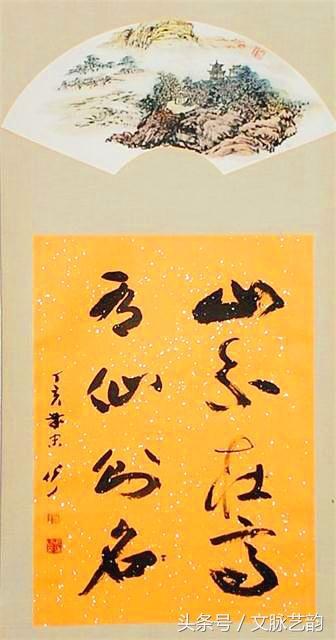 山不在高
有仙则名
丁亥
头条号 / 文脉艺韵